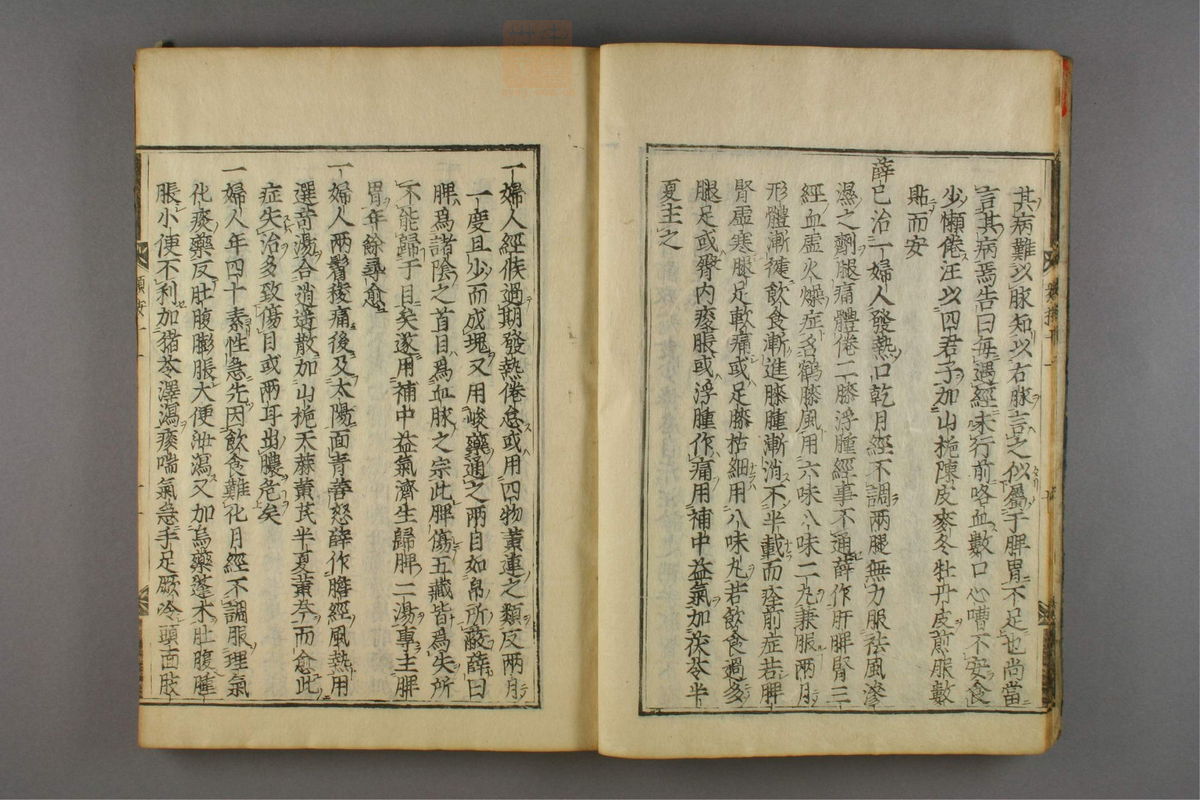 其病難以脉知以右脉言之似屬于脾胃不足也尚當
言其病焉告曰每遇經未行前咯血數口心嘈不安食
少懶倦汪以四君子加山梔陳皮麥冬牡丹皮煎服數
貼而安
薛己治一婦人發熱口乾月經不調兩腿無力服祛風滲
濕之劑腿痛體倦二膝浮腫經事不通薛作肝脾腎三
經血虛火燥症名鶴膝風用六味八味二丸兼服兩月
形體漸健飲食漸進膝腫漸消不半載而痊前症若脾
腎虛寒腿足軟痛或足膝枯細用八味丸若飲食過多
腿足或臀内痠脹或浮腫作痛用補中益氣加茯苓半
夏主之
一婦人經候過期發熱倦怠或用四物黃連之類反兩月
一度且少而成塊又用峻藥通之兩目如帛所蔽薛曰
脾爲諸陰之首目爲血脉之宗此脾傷五藏皆爲失所
不能歸于目矣遂用補中益氣濟生歸脾二湯專主脾
胃年餘尋愈
一婦人兩鬢痠痛後及太陽面青善怒薛作膽經風熱用
選奇湯合逍遙散加山梔天蔴黃芪半夏黃芩而愈此
症失治多致傷目或兩耳出膿危矣
一婦人年四十素性急先因飲食難化月經不調服理氣
化痰藥反肚腹膨脹大便泄瀉又加烏藥蓬朮肚腹腫
脹小便不利加猪苓澤瀉痰喘氣急手足厥冷頭面肢